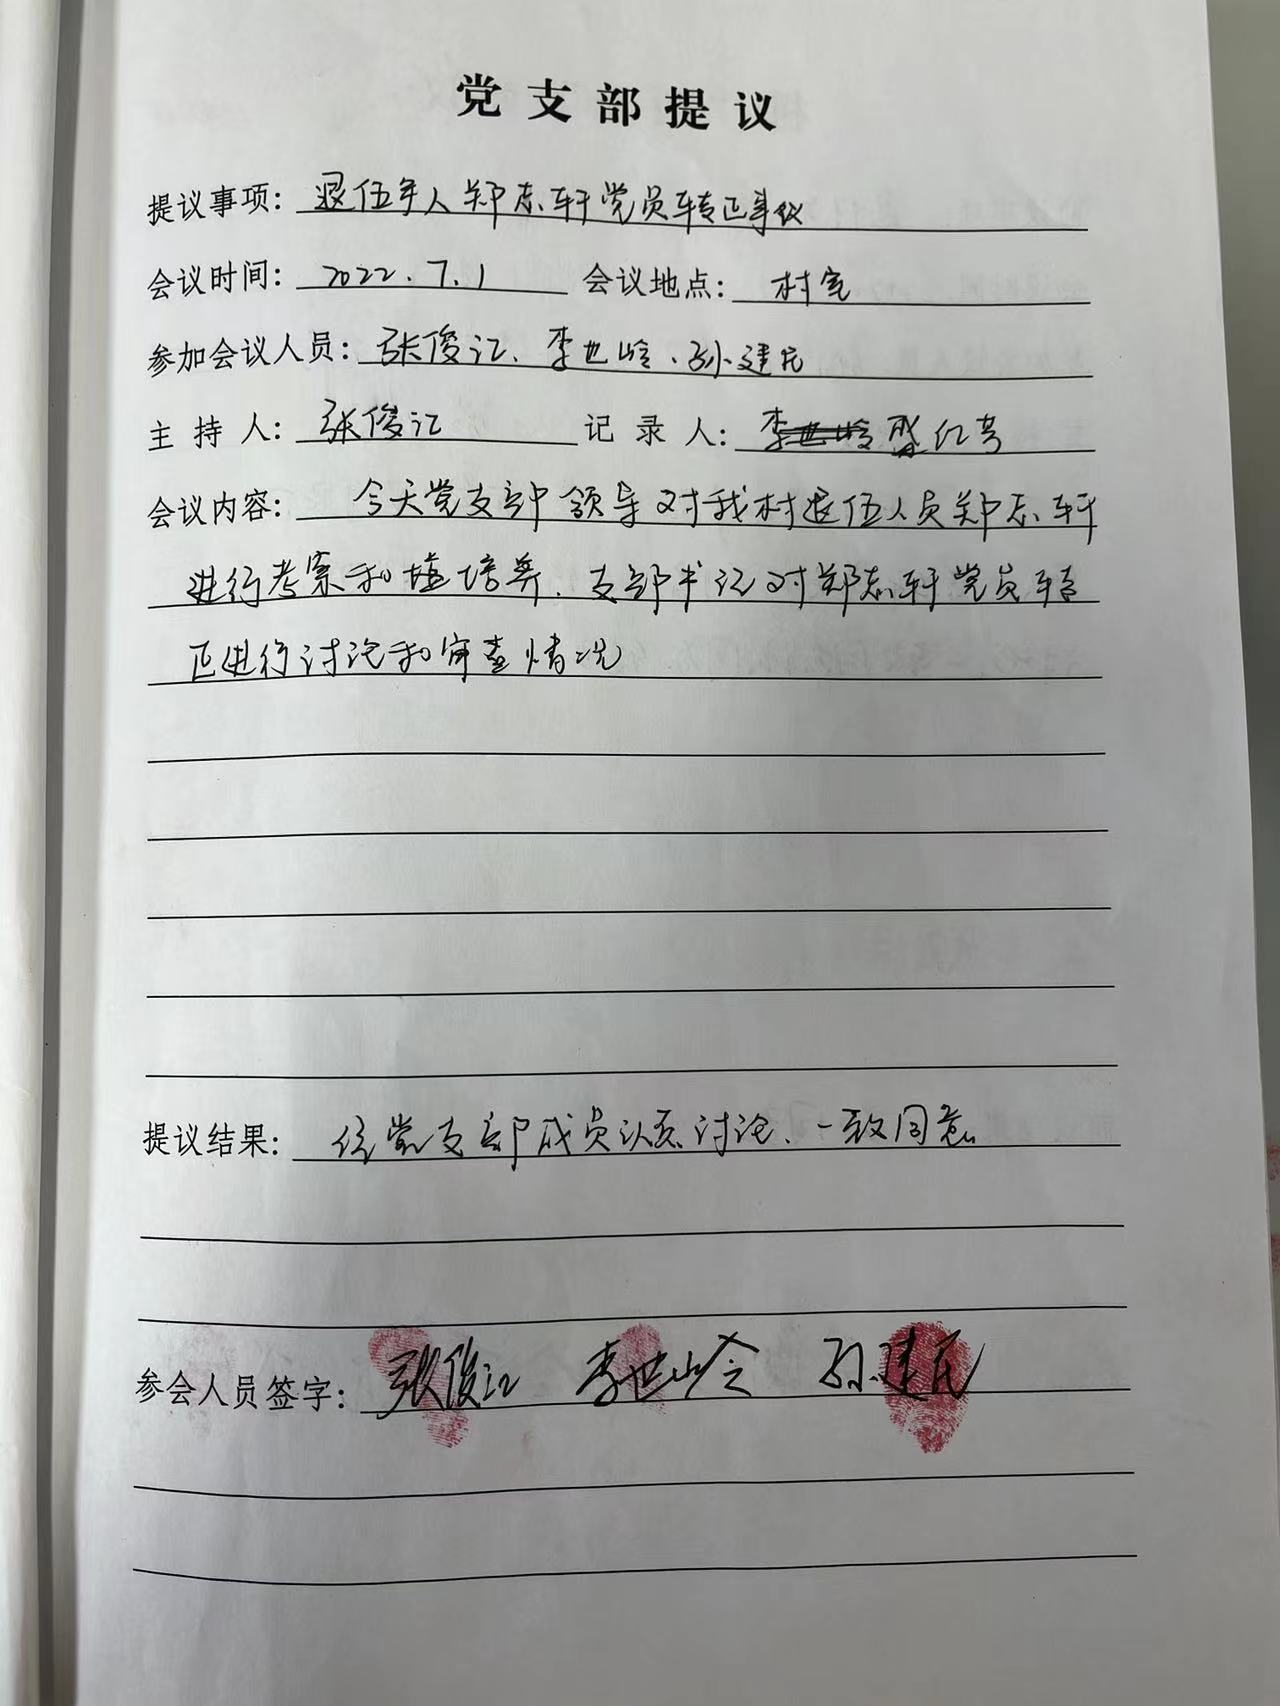 党支部提议
提议事项：退伍军人郑志轩党员转正事仪
会议时间：2022.7.1 会议地点：村室
参加会议人员：张俊江、李世岭、孙建民
主持人：张俊江 记录人：李世岭 盛红芳
会议内容：今天党支部领导对我村退伍人员郑志轩
进行考察和培养、支部书记对郑志轩党员转
正进行讨论和审查情况
提议结果：经党支部成员认真讨论、一致同意
参会人员签字：张俊江 李世岭 孙建民